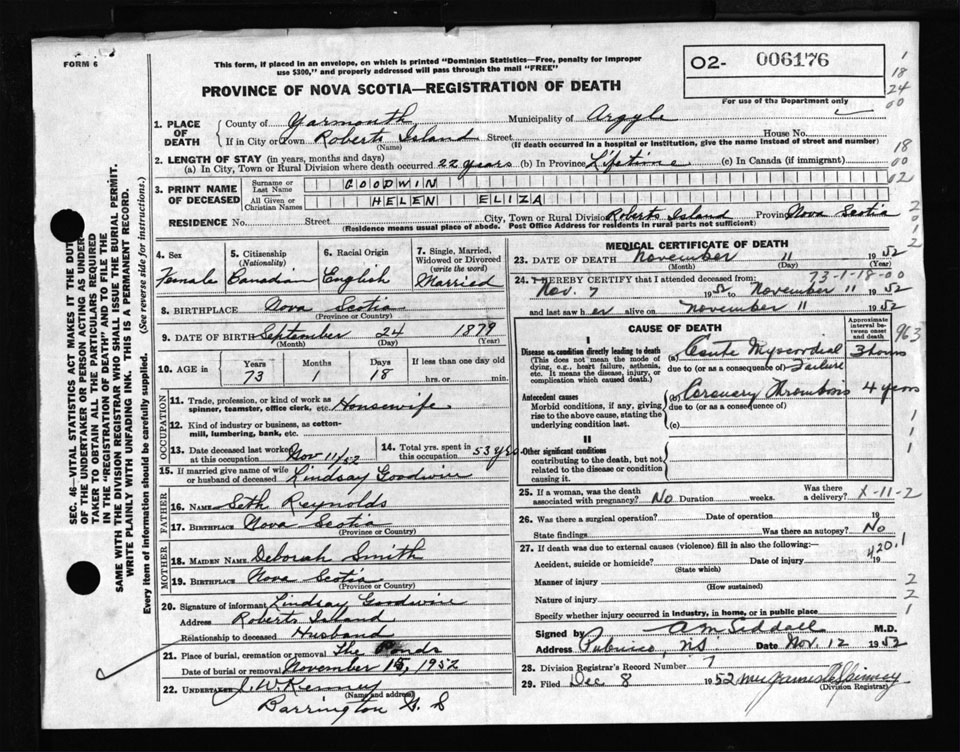 FORM 6
This form, if placed in an envelope, on which is printed "Dominion Statistics—Free, penalty for improper
use $300," and properly addressed will pass through the mail "FREE"
PROVINCE OF NOVA SCOTIA—REGISTRATION OF DEATH
O2- 006176
For use of the Department only
1
18
24
00
18
00
02
SEC. 46—VITAL STATISTICS ACT MAKES IT THE DUTY
OF THE UNDERTAKER OR PERSON ACTING AS UNDER-
TAKER TO OBTAIN ALL THE PARTICULARS REQUIRED
IN THE "REGISTRATION OF DEATH" AND TO FILE THE
SAME WITH THE DIVISION REGISTRAR WHO SHALL ISSUE THE BURIAL PERMIT.
WRITE PLAINLY WITH UNFADING INK. THIS IS A PERMANENT RECORD.
Every item of information should be carefully supplied. (See reverse side for instructions.)
1. PLACE OF DEATH County of Yarmouth Municipality of Argyle
If in City or Town Roberts Island Street House No.
(Name) (If death occurred in a hospital or institution, give the name instead of street and number)
2. LENGTH OF STAY (in years, months and days)
(a) In City, Town or Rural Division where death occurred 22 years (b) In Province Lifetime (c) In Canada (if immigrant)
3. PRINT NAME OF DECEASED Surname or Last Name GOODWIN
All Given or Christian Names HELEN ELIZA
RESIDENCE No. Street City, Town or Rural Division Roberts Island Province Nova Scotia
(Residence means usual place of abode. Post Office Address for residents in rural parts not sufficient)
4. Sex Female
5. Citizenship (Nationality) Canadian
6. Racial Origin English
7. Single, Married, Widowed or Divorced (write the word) Married
8. BIRTHPLACE Nova Scotia
(Province or Country)
9. DATE OF BIRTH September 24 1879
(Month) (Day) (Year)
10. AGE in Years 73 Months 1 Days 18 If less than one day old hrs. or min.
OCCUPATION
11. Trade, profession, or kind of work as spinner, teamster, office clerk, etc. Housewife
12. Kind of industry or business, as cotton-mill, lumbering, bank, etc.
13. Date deceased last worked at this occupation Nov 11/52
14. Total yrs. spent in this occupation 53 yrs
15. If married give name of wife or husband of deceased Lindsay Goodwin
FATHER
16. NAME Seth Reynolds
17. BIRTHPLACE Nova Scotia
(Province or Country)
MOTHER
18. MAIDEN NAME Deborah Smith
19. BIRTHPLACE Nova Scotia
(Province or Country)
20. Signature of informant Lindsay Goodwin
Address Roberts Island
Relationship to deceased Husband
21. Place of burial, cremation or removal The Ponds
Date of burial or removal November 15, 1952
22. UNDERTAKER J. W. Kenney
(Name and address)
Barrington N. S
MEDICAL CERTIFICATE OF DEATH
23. DATE OF DEATH November 11 1952
(Month) (Day) (Year)
73-1-18-00
24. I HEREBY CERTIFY that I attended deceased from:
Nov. 7 1952 to November 11 1952
and last saw her alive on November 11 1952
CAUSE OF DEATH
Approximate interval between onset and death
963
I
Disease or condition directly leading to death (a) Acute Myocardial 3 hours
(This does not mean the mode of dying, e.g., heart failure, asthenia, etc. It means the disease, injury, or complication which caused death.)
due to (or as a consequence of) Failure
Antecedent causes (b) Coronary Thrombosis 4 years
Morbid conditions, if any, giving rise to the above cause, stating the underlying condition last.
due to (or as a consequence of)
(c)
II
Other significant conditions
contributing to the death, but not related to the disease or condition causing it.
25. If a woman, was the death associated with pregnancy? No Duration weeks. Was there a delivery? X-11-2
26. Was there a surgical operation? Date of operation 19
State findings Was there an autopsy? No
27. If death was due to external causes (violence) fill in also the following:— 420.1
Accident, suicide or homicide? Date of injury 19
(State which)
Manner of injury
(How sustained)
Nature of injury
Specify whether injury occurred in industry, in home, or in public place
Signed by A M Siddall M.D.
Address Pubnico, NS Date Nov. 12 1952
28. Division Registrar's Record Number 7
29. Filed Dec 8 1952
(Division Registrar)